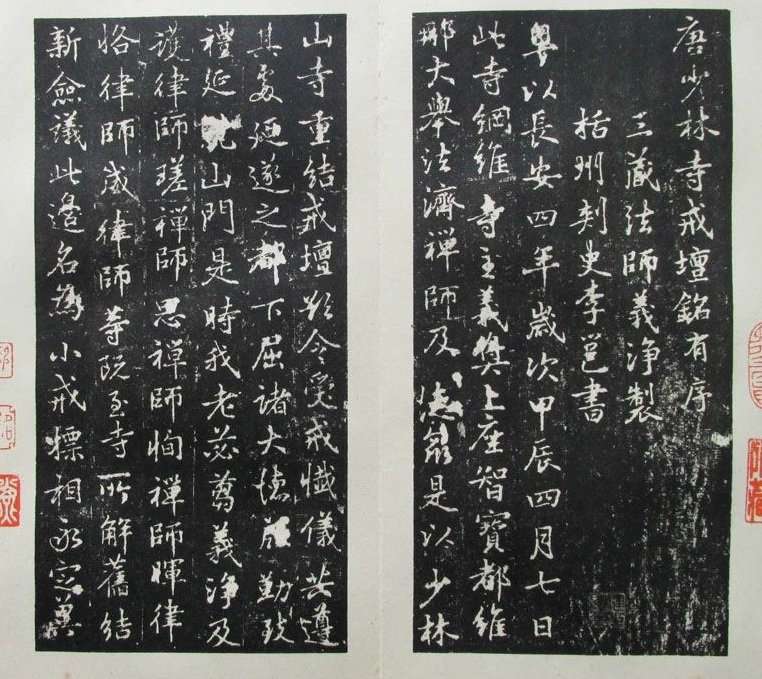 唐少林寺戒壇銘有序
三藏法師義淨製
括州刾史李邕書
粤以長安四年歲次甲辰四月七日
此寺綱維寺主義奬上座智寶都維
那大舉法濟禪師及德衆是以少林
山寺重結戒壇欲令受戒懺儀共遵
其處廼遂之都下屈諸大德慇勤致
禮延就山門是時我老苾蒭義淨及
護律師瑳禪師思禪師恂禪師暉律
恪律師威律師等既至寺所解舊結
新僉議此邊名爲小戒標相永定異